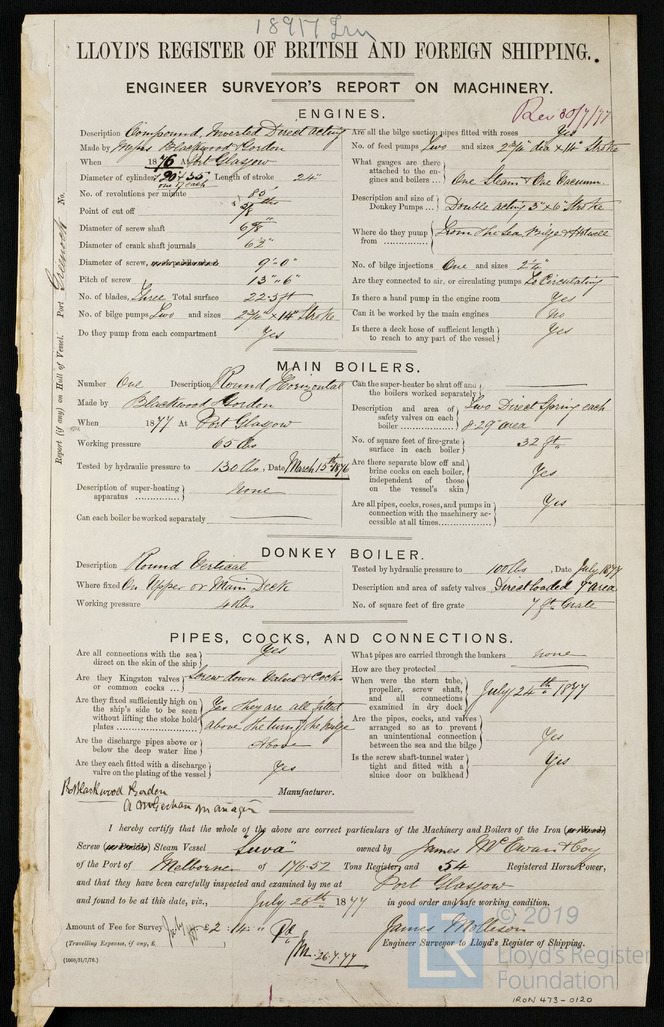 1897 Irn
LLOYD'S REGISTER OF BRITISH AND FOREIGN SHIPPING.
ENGINEER SURVEYOR'S REPORT ON MACHINERY.
Rec 30/7/77
Report (if any) on Hull of Vessel. Port Greenock No.
ENGINES.
Description Compound, Inverted Direct Acting
Made by Messrs Blackwood & Gordon
When 1876 At Port Glasgow
Diameter of cylinders 20" & 35" Length of stroke 24"
one of each
No. of revolutions per minute 85
Point of cut off
Diameter of screw shaft
Diameter of crank shaft journals
Diameter of screw, 9'-0"
Pitch of screw 13'-6"
No. of blades, Three Total surface 22.3 ft
No. of bilge pumps Two and sizes 2¾" × 14" Stroke
Do they pump from each compartment Yes
Are all the bilge suction pipes fitted with roses Yes
No. of feed pumps Two and sizes 2¾" dia × 14" Stroke
What gauges are there attached to the engines and boilers ... One Steam & One Vacuum
Description and size of Donkey Pumps ... Double acting 3" × 6" Stroke
Where do they pump from From the Sea, Bilge & Hotwell
No. of bilge injections One and sizes
Are they connected to air, or circulating pumps To Circulating
Is there a hand pump in the engine room Yes
Can it be worked by the main engines No
Is there a deck hose of sufficient length to reach to any part of the vessel Yes
MAIN BOILERS.
Number One Description Round Horizontal
Made by Blackwood & Gordon
When 1877 At Port Glasgow
Working pressure 65 lbs
Tested by hydraulic pressure to 130 lbs, Date March 15th 1876
Description of super-heating apparatus ............... None
Can each boiler be worked separately
Can the super-heater be shut off and the boilers worked separately
Description and area of safety valves on each boiler Two Direct Spring each
8.29" area
No. of square feet of fire-grate surface in each boiler 32 ft
Are there separate blow off and brine cocks on each boiler, independent of those on the vessel's skin Yes
Are all pipes, cocks, roses, and pumps in connection with the machinery accessible at all times............ Yes
DONKEY BOILER.
Description Round Vertical
Where fixed On Upper or Main Deck
Working pressure
Tested by hydraulic pressure to 100 lbs, Date July 1877
Description and area of safety valves Direct loaded 7" area
No. of square feet of fire grate 7 ft Grate
PIPES, COCKS, AND CONNECTIONS.
Are all connections with the sea direct on the skin of the ship Yes
Are they Kingston valves or common cocks ... Screw down Valves & Cocks
Are they fixed sufficiently high on the ship's side to be seen without lifting the stoke hold plates Yes they are all fitted
above the turn of the bilge
Are the discharge pipes above or below the deep water line Above
Are they each fitted with a discharge valve on the plating of the vessel Yes
What pipes are carried through the bunkers None
How are they protected
When were the stern tube, propeller, screw shaft, and all connections examined in dry dock July 24th 1877
Are the pipes, cocks, and valves arranged so as to prevent an unintentional connection between the sea and the bilge Yes
Is the screw shaft-tunnel water tight and fitted with a sluice door on bulkhead Yes
Blackwood Gordon Manufacturer.
Manager
I hereby certify that the whole of the above are correct particulars of the Machinery and Boilers of the Iron (or Wood)
Screw (or Paddle) Steam Vessel "Suva" owned by James McEwan & Coy
of the Port of Melborne of 176.57 Tons Register and 54 Registered Horse Power,
and that they have been carefully inspected and examined by me at Port Glasgow
and found to be at this date, viz., July 26th 1877 in good order and safe working condition.
Amount of Fee for Survey £2
(Travelling Expenses, if any, £ )
26.7.77
James Mollison
Engineer Surveyor to Lloyd's Register of Shipping.
[1000/31/7/76.]
© 2019
LR
Lloyd's Register
Foundation
IRON 473-0120